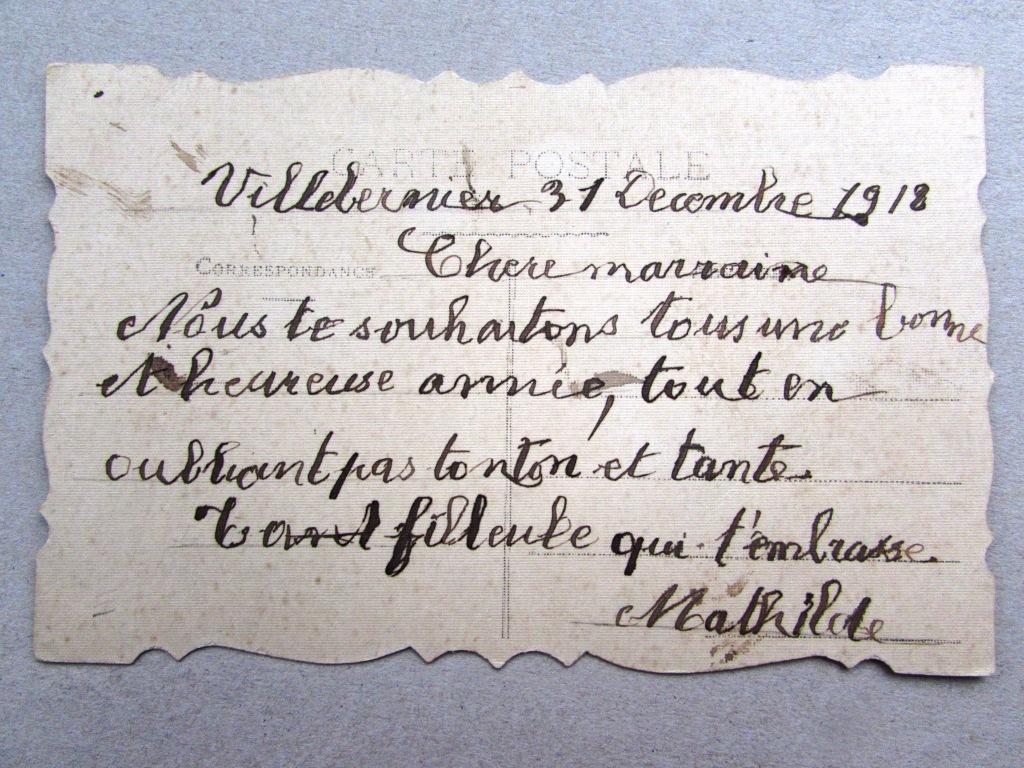 CARTE POSTALE
Villdernier 31 Decembre 1918
CORRESPONDANCE
Chere marraine
Nous te souhaitons tous une bonne
et heureuse année, tout en
oubliant pas tonton et tante.
filleule qui t'embrasse.
Mathilde